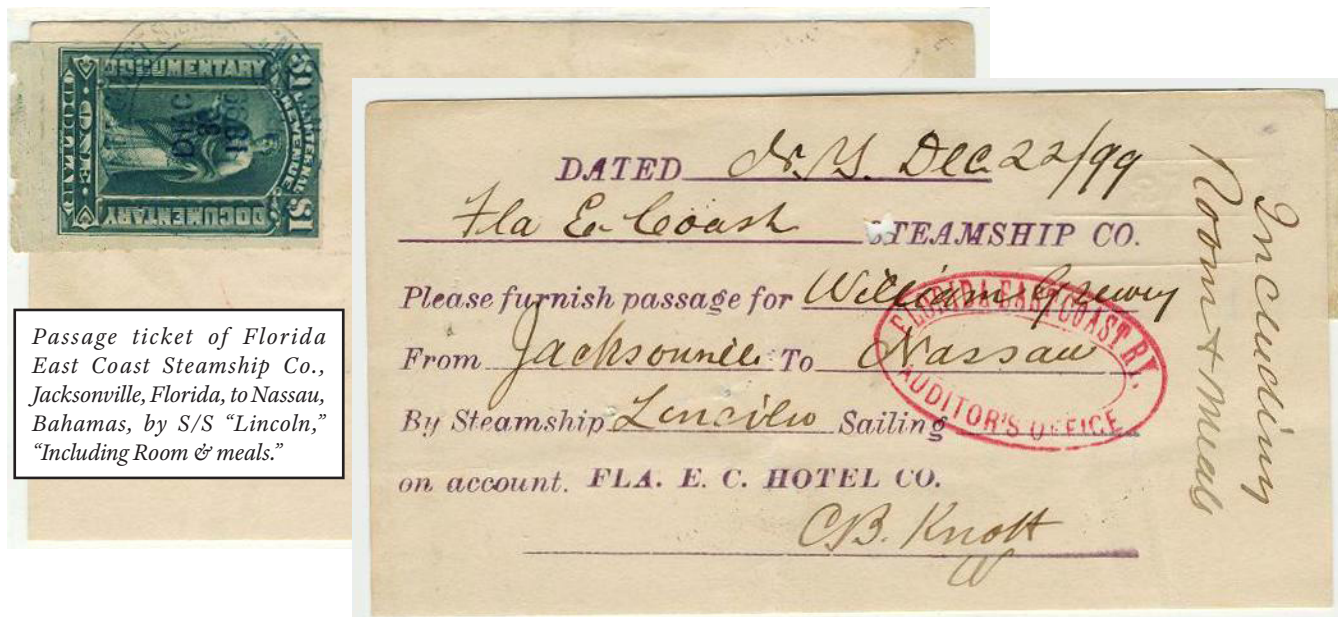 $1 INTERNAL REVENUE $1
DOCUMENTARY
DOCUMENTARY
ONE
DOLLAR
DEC
1899
Passage ticket of Florida
East Coast Steamship Co.,
Jacksonville, Florida, to Nassau,
Bahamas, by S/S “Lincoln,”
“Including Room & meals.”
DATED N.Y. Dec 22/99
Fla E. Coast STEAMSHIP CO.
Please furnish passage for William
From Jacksonville To Nassau
By Steamship Lincoln Sailing
on account. FLA. E. C. HOTEL CO.
C.B. Knott
FLORIDA EAST COAST RY.
AUDITOR'S OFFICE
Including
Room & Meals